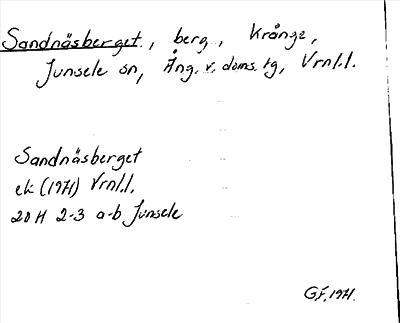 Sandnäsberget, berg, Krånge,
Junsele sn, Ång. v. doms. tg, Vrnl.l.
Sandnäsberget
ek (1971) Vrnl.l.
20 H 2-3 a-b Junsele
G.F. 1971.